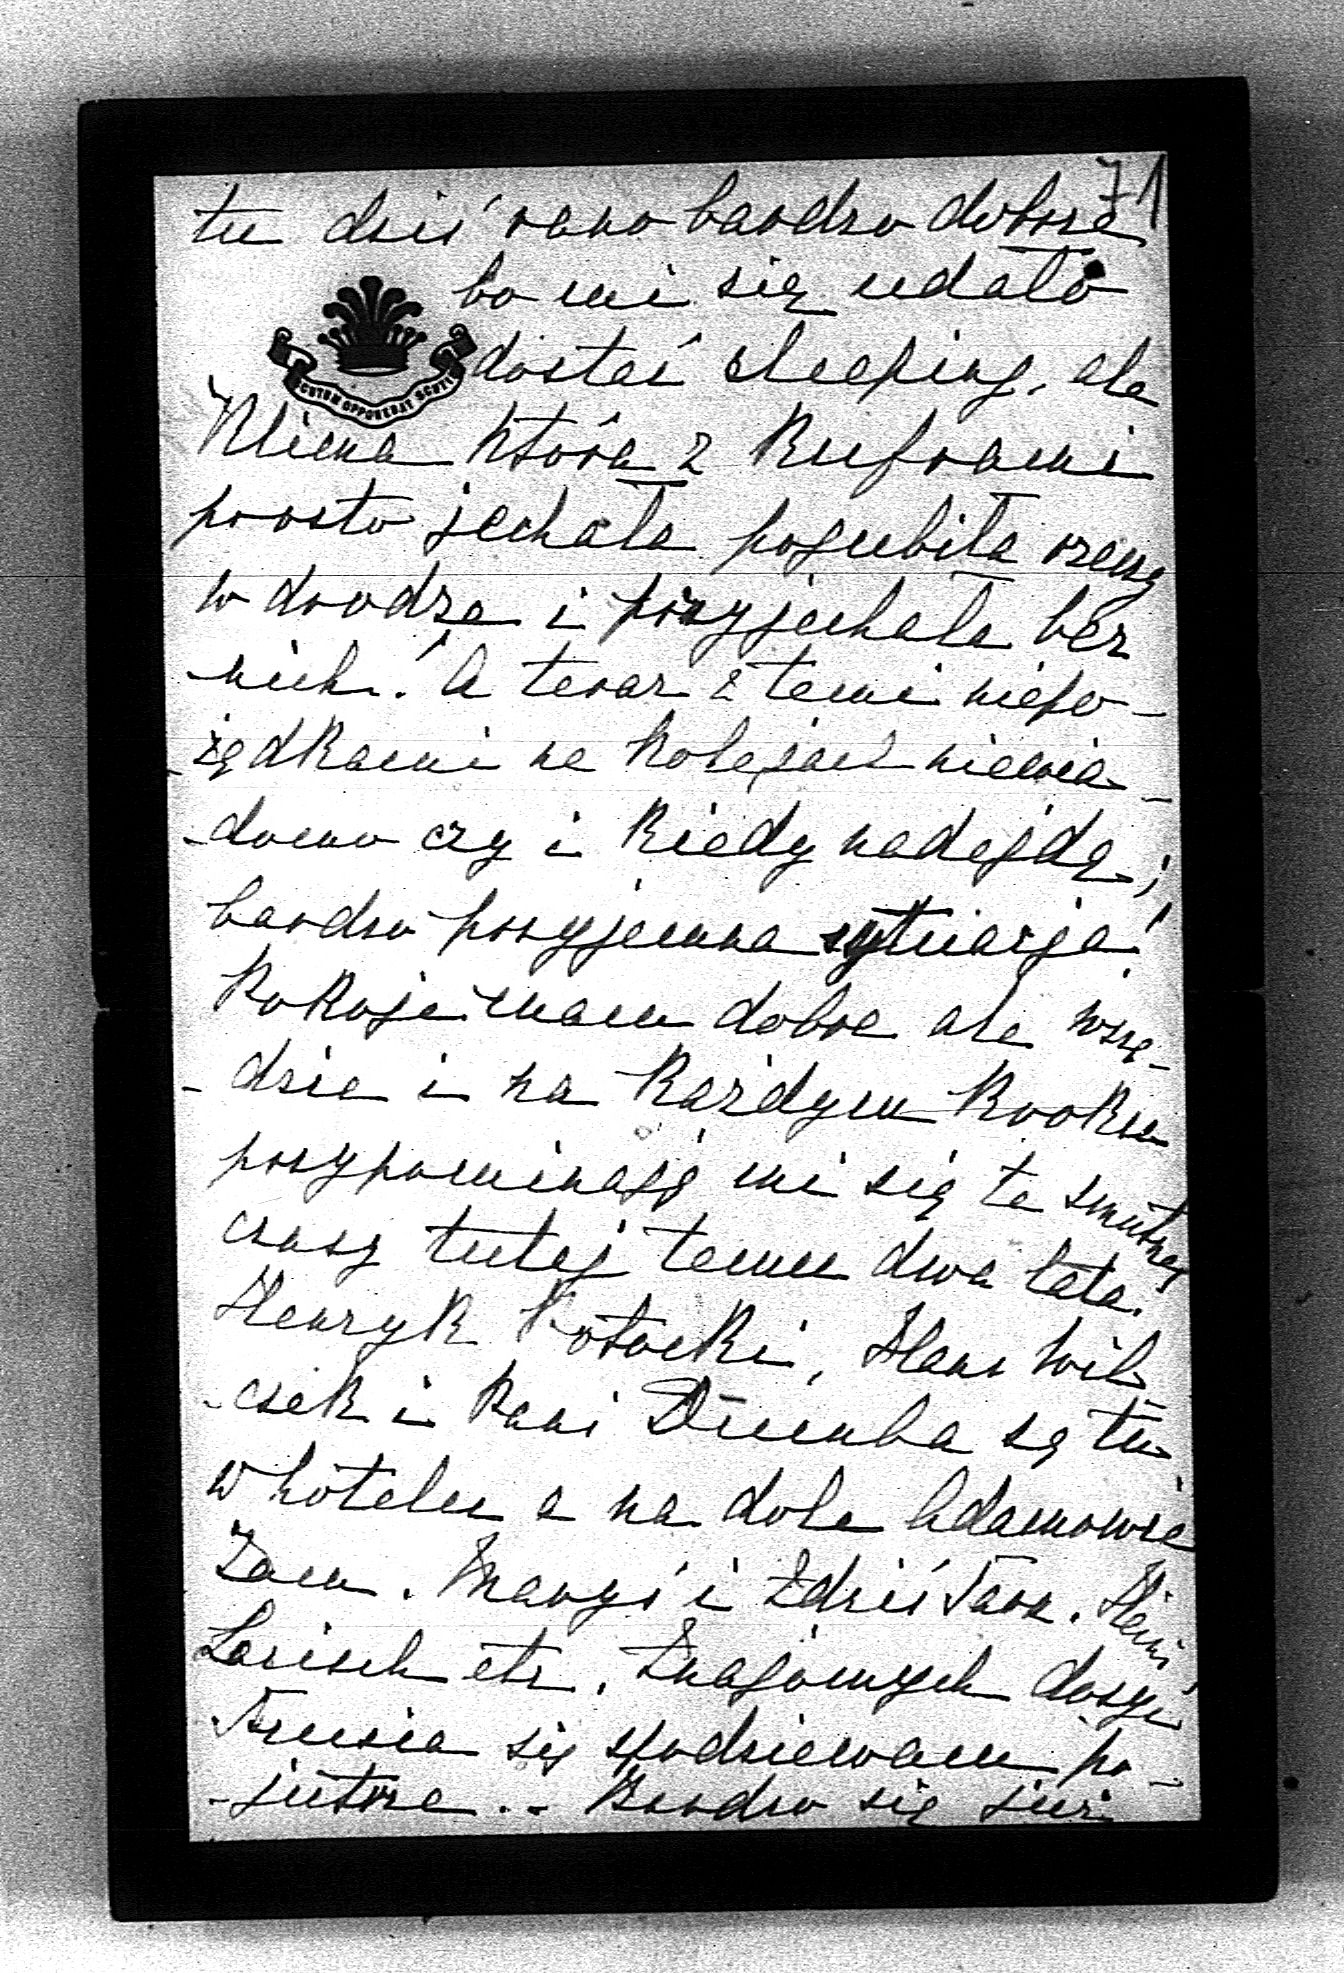 71
tu dziś rano bardzo dobrze
bo mi się udało
dostać sleeping, ale
SCUTUM OPPONEBAT SCUTIS
Klima która z Kuframi
prosto jechała pogubiła rzeczy
w drodze i przyjechała bez
nich! A teraz z temi niepo-
-rządkami na kolejach niewia-
-domo czy i kiedy nadejdą;
bardzo przyjemna sytuacja!
Pokoje mam dobre ale wszę-
-dzie i na każdym kroku
przypominają mi się te smutne
czasy tutaj temu dwa lata.
Henryk Potocki, Hans Wil-
-czek i Pani Dumba są tu
w hotelu a na dole Adamowie
Zam. Maryś i Zdziś Tarn. Heni
Larisch etc. Znajomych dosyć
się spodziewam po-
-jutrze.. Bardzo się już